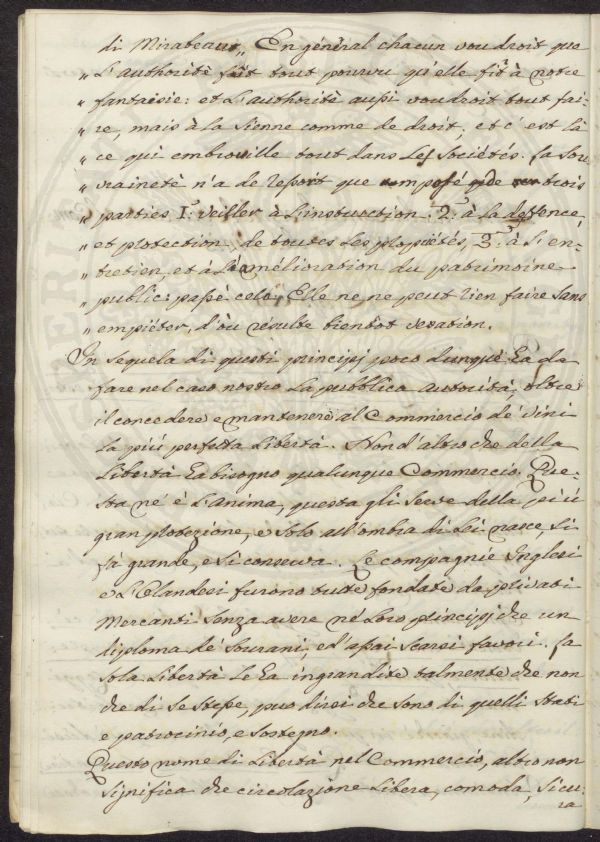 di Mirabeau „ En général chacun voudroit que
„ L'authorité fût tout pourvu qu'elle fit à notre
„ fantaisie: et L'authorité aussi voudroit tout fai-
„ re, mais à la Sienne comme de droit, et c'est là
„ ce qui embrouille tout dans Les Sociétés. La Sou
„ vraineté n'a de resort que composé de trois
„ parties 1.° veiller à L'instruction. 2.° à La deffence,
„ et protection, de toutes Les propiétés, 3.° à L'en-
„ tretien, et à L'amélioration du patrimoine
„ public: passé celà, Elle ne ne peut rien faire Sans
„ empiéter, d'òu résulte bientôt vexation.
In sequela di questi principj poco dunque ha da
fare nel caso nostro La pubblica autorità, oltre
il concedere e mantenere al Commercio de' vini
La più perfetta Libertà. Non d'altro che della
Libertà ha bisogno qualunque Commercio. Que-
sta né è L'Anima, questa gli Serve della più
gran protezione, e Solo all'ombra di Lei nasce, Si
fà grande, e Si conserva. Le compagnie Inglesi
e L'Olandesi furono tutte fondate da privati
Mercanti Senza avere né Loro principj che un
diploma de' Sourani e d'assai scarsi favori. La
Sola Libertà Le ha ingrandite talmente che non
che di Se Stesse, puo dirsi che Sono di quelli Stati
e patrocinio, e Sostegno.
Questo nome di Libertà nel Commercio, altro non
Significa che circolazione Libera, comoda, Sicu:
ra